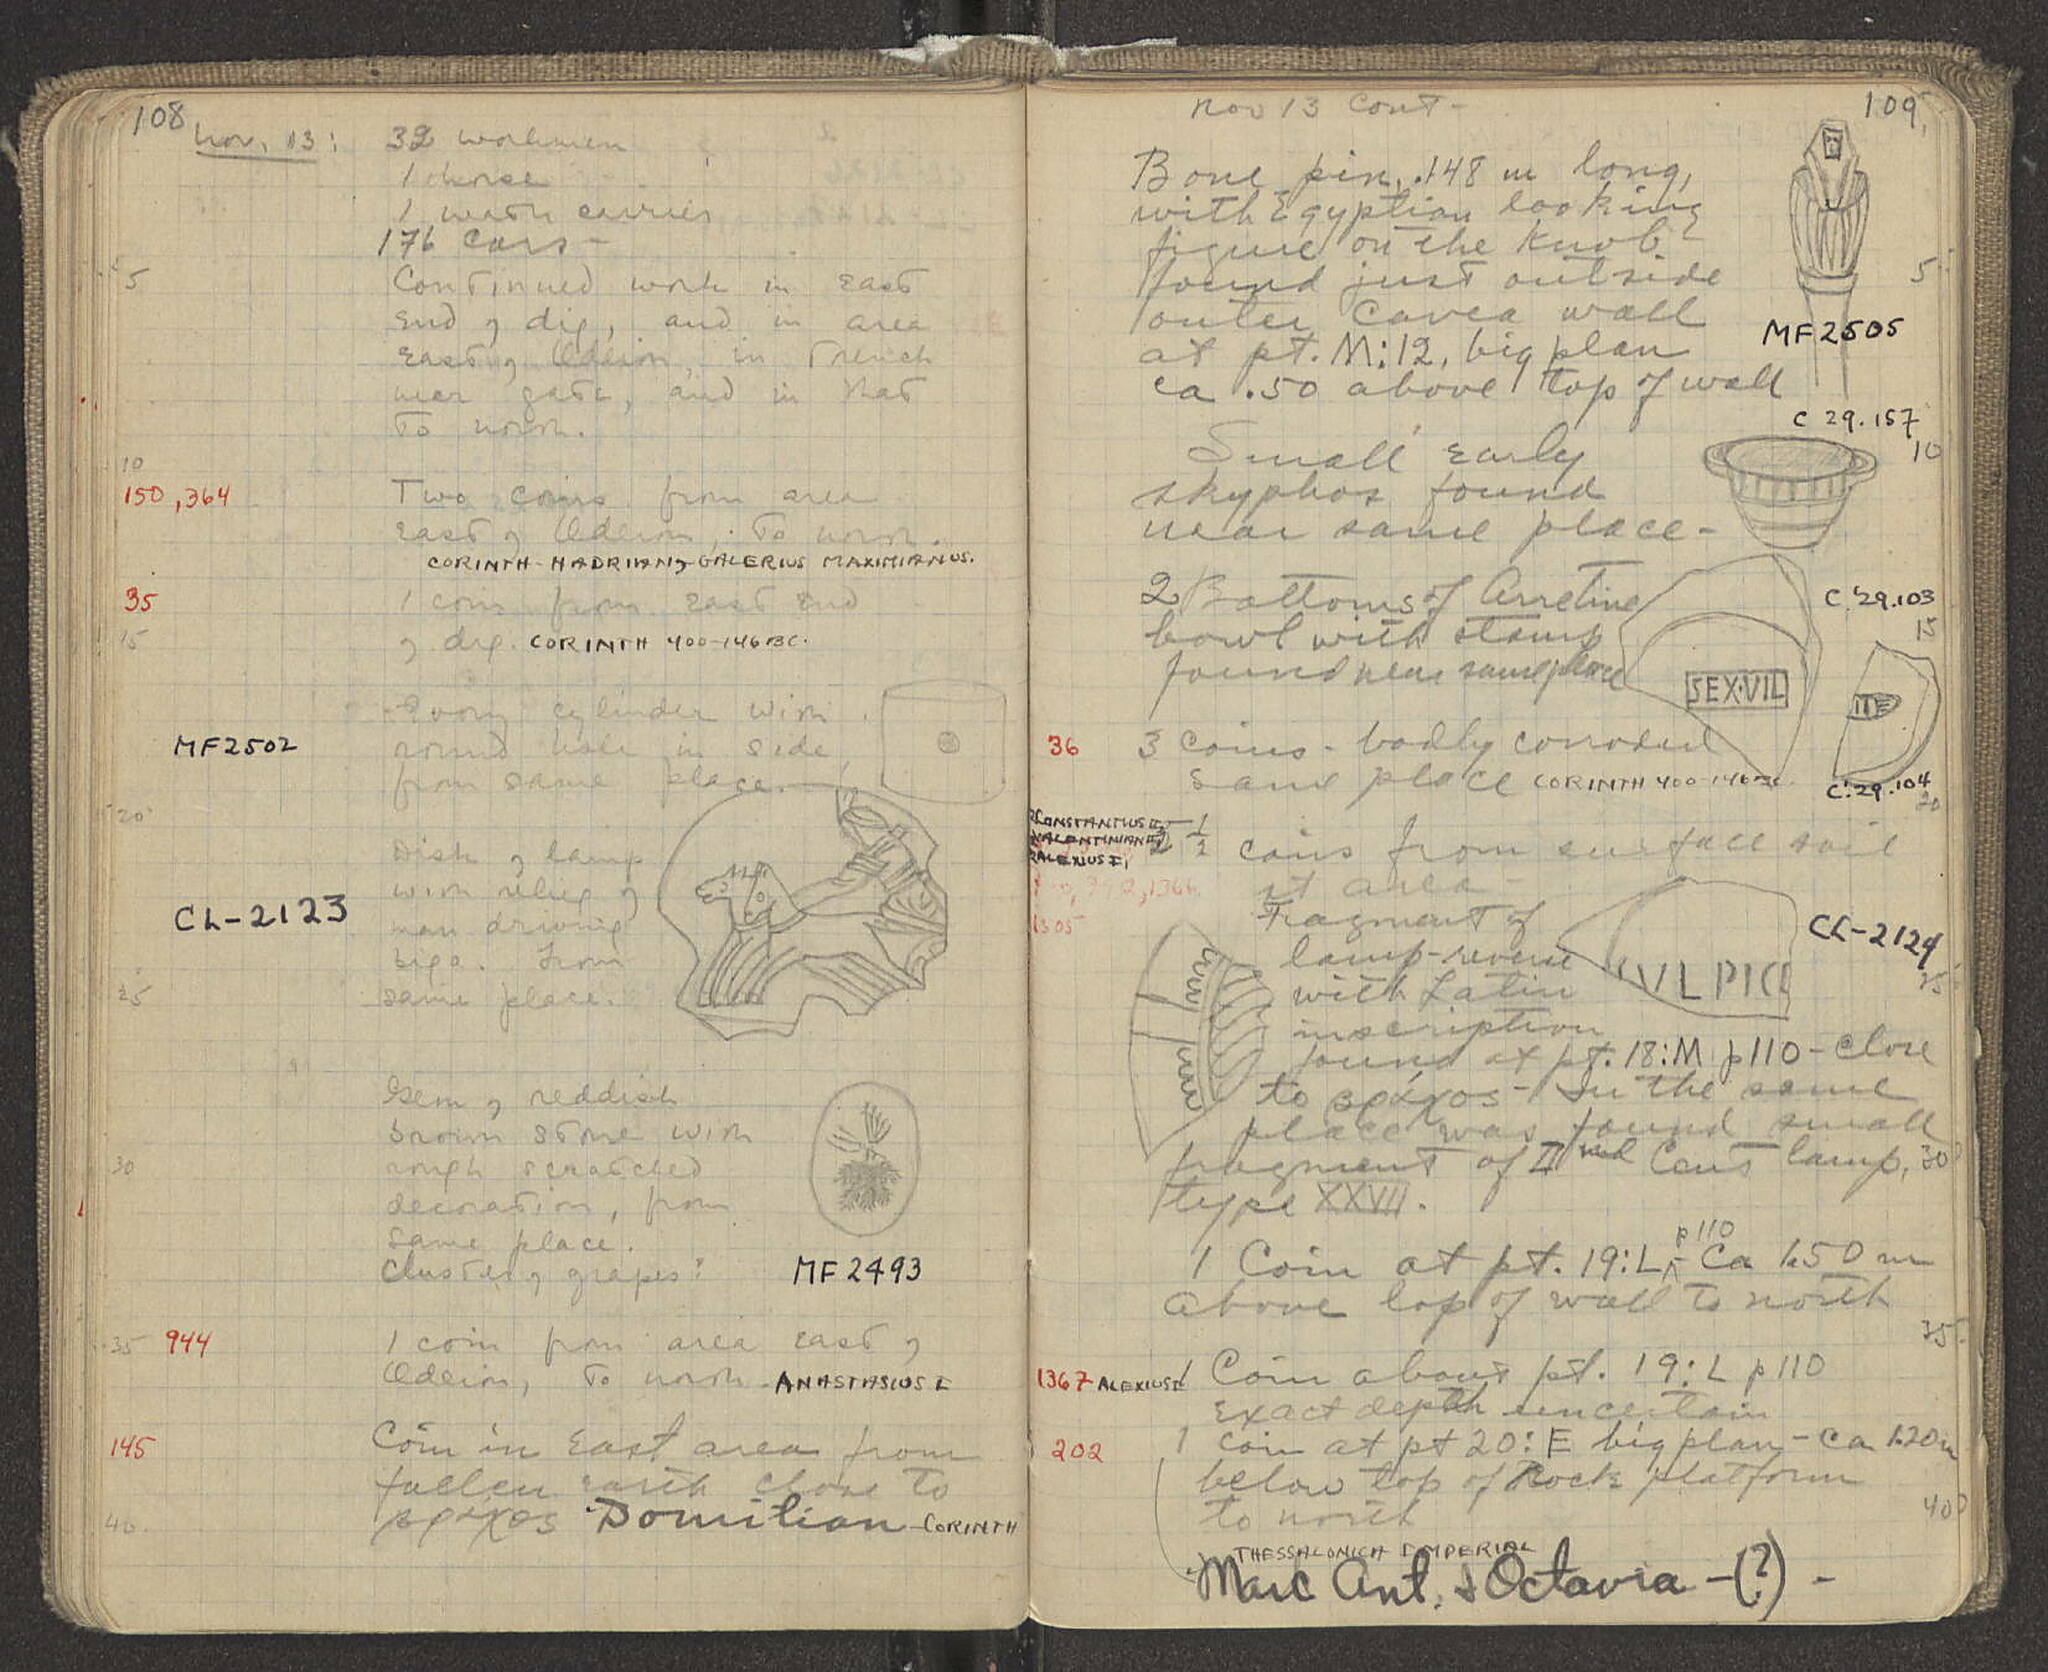 108
Nov. 13: 32 workmen
1 horse
1 water carrier
176 cars-
5 Continued work in east
end of dig, and in area
east of Odeion, in trench
near gate, and in that
to north.
10
150, 364 Two coins from area
east of Odeion, to north.
CORINTH - HADRIAN, GALERIUS MAXIMIANUS.
35 1 coin from east end
15 of dig. CORINTH 400-146 BC.
Ivory cylinder with
MF2502 round hole in side,
from same place.
20
Disk of lamp
with relief of
CL-2123 man driving
biga. From
25 same place.
Gem of reddish
brown stone with
30 rough scratched
decoration, from
same place.
Cluster of grapes? MF 2493
35 944 1 coin from area east of
Odeion, to north. ANASTASIUS I
145 Coin in East area from
fallen earth close to
40 Domitian - CORINTH
109
Nov 13 Cont-
Bone pin, .148 m long,
with Egyptian looking
figure on the knob -
found just outside 5
outer cavea wall
MF2505
at pt. M:12, big plan
ca .50 above top of wall
C 29.157
Small early 10
skyphos found
near same place -
2 Bottoms of Arretine C.29.103
bowl with stamp 15
found near same place
SEX·VIL
36 3 coins - badly corroded
same place CORINTH 400-146 BC.
C.29.104
20
CONSTANTIUS II
VALENTINIAN II
ALEXIUS I,
coins from surface soil
at area -
1305 Fragment of
CL-2124
lamp-reverse
with Latin 25
VLPICI
inscription
found at pt. 18:M p110 - close
to - In the same
place was found small
fragment of IInd Cent lamp, 30
type XXVII.
p110
1 Coin at pt. 19:L, - Ca 1.50 m
above top of wall to north
35
1367 ALEXIUS I 1 Coin about pt. 19:L p110
exact depth uncertain
202 1 coin at pt 20:E big plan - ca 1.20 m
below top of Rock platform
to north 40
THESSALONICA IMPERIAL
Marc Ant. & Octavia - (?) -